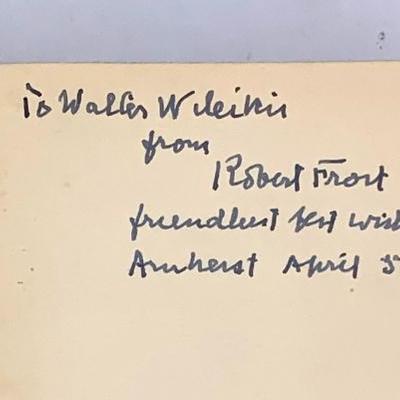 To Walter
from
Robert Frost
friendliest best
Amherst April 5